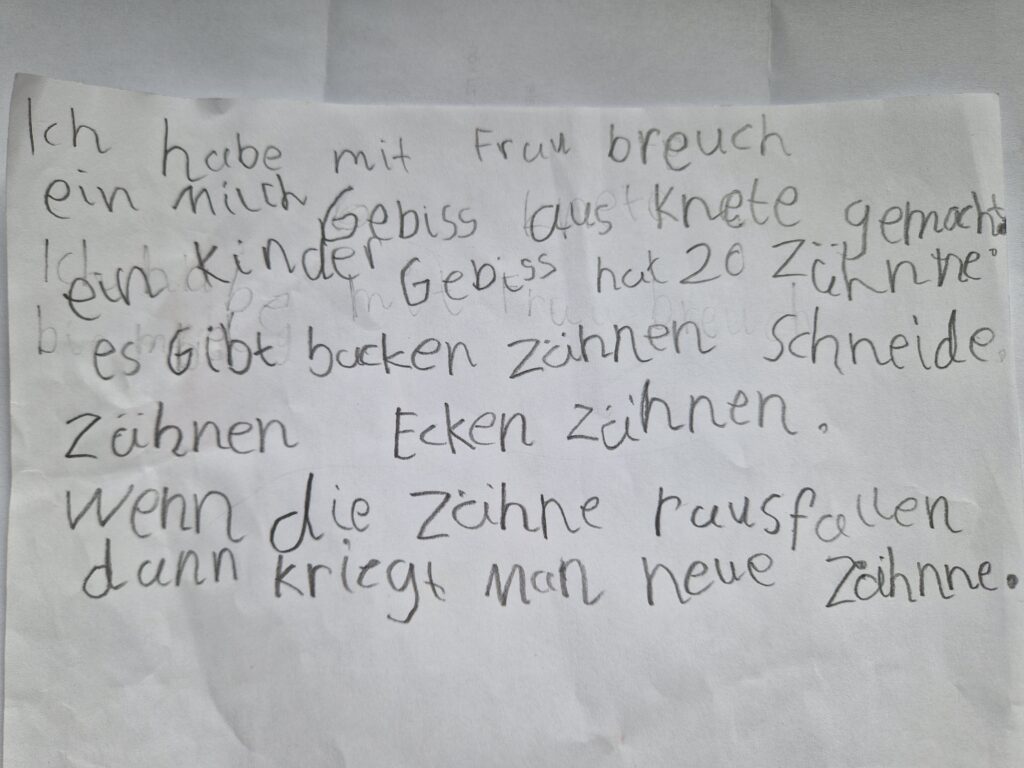 Ich habe mit Frau breuch
ein milch Gebiss aus Knete gemacht.
ein kinder Gebiss hat 20 Zähnne.
es Gibt backen zähnen Schneide
Zähnen Ecken zähnen.
wenn die Zähne rausfallen
dann kriegt man neue Zähnne.